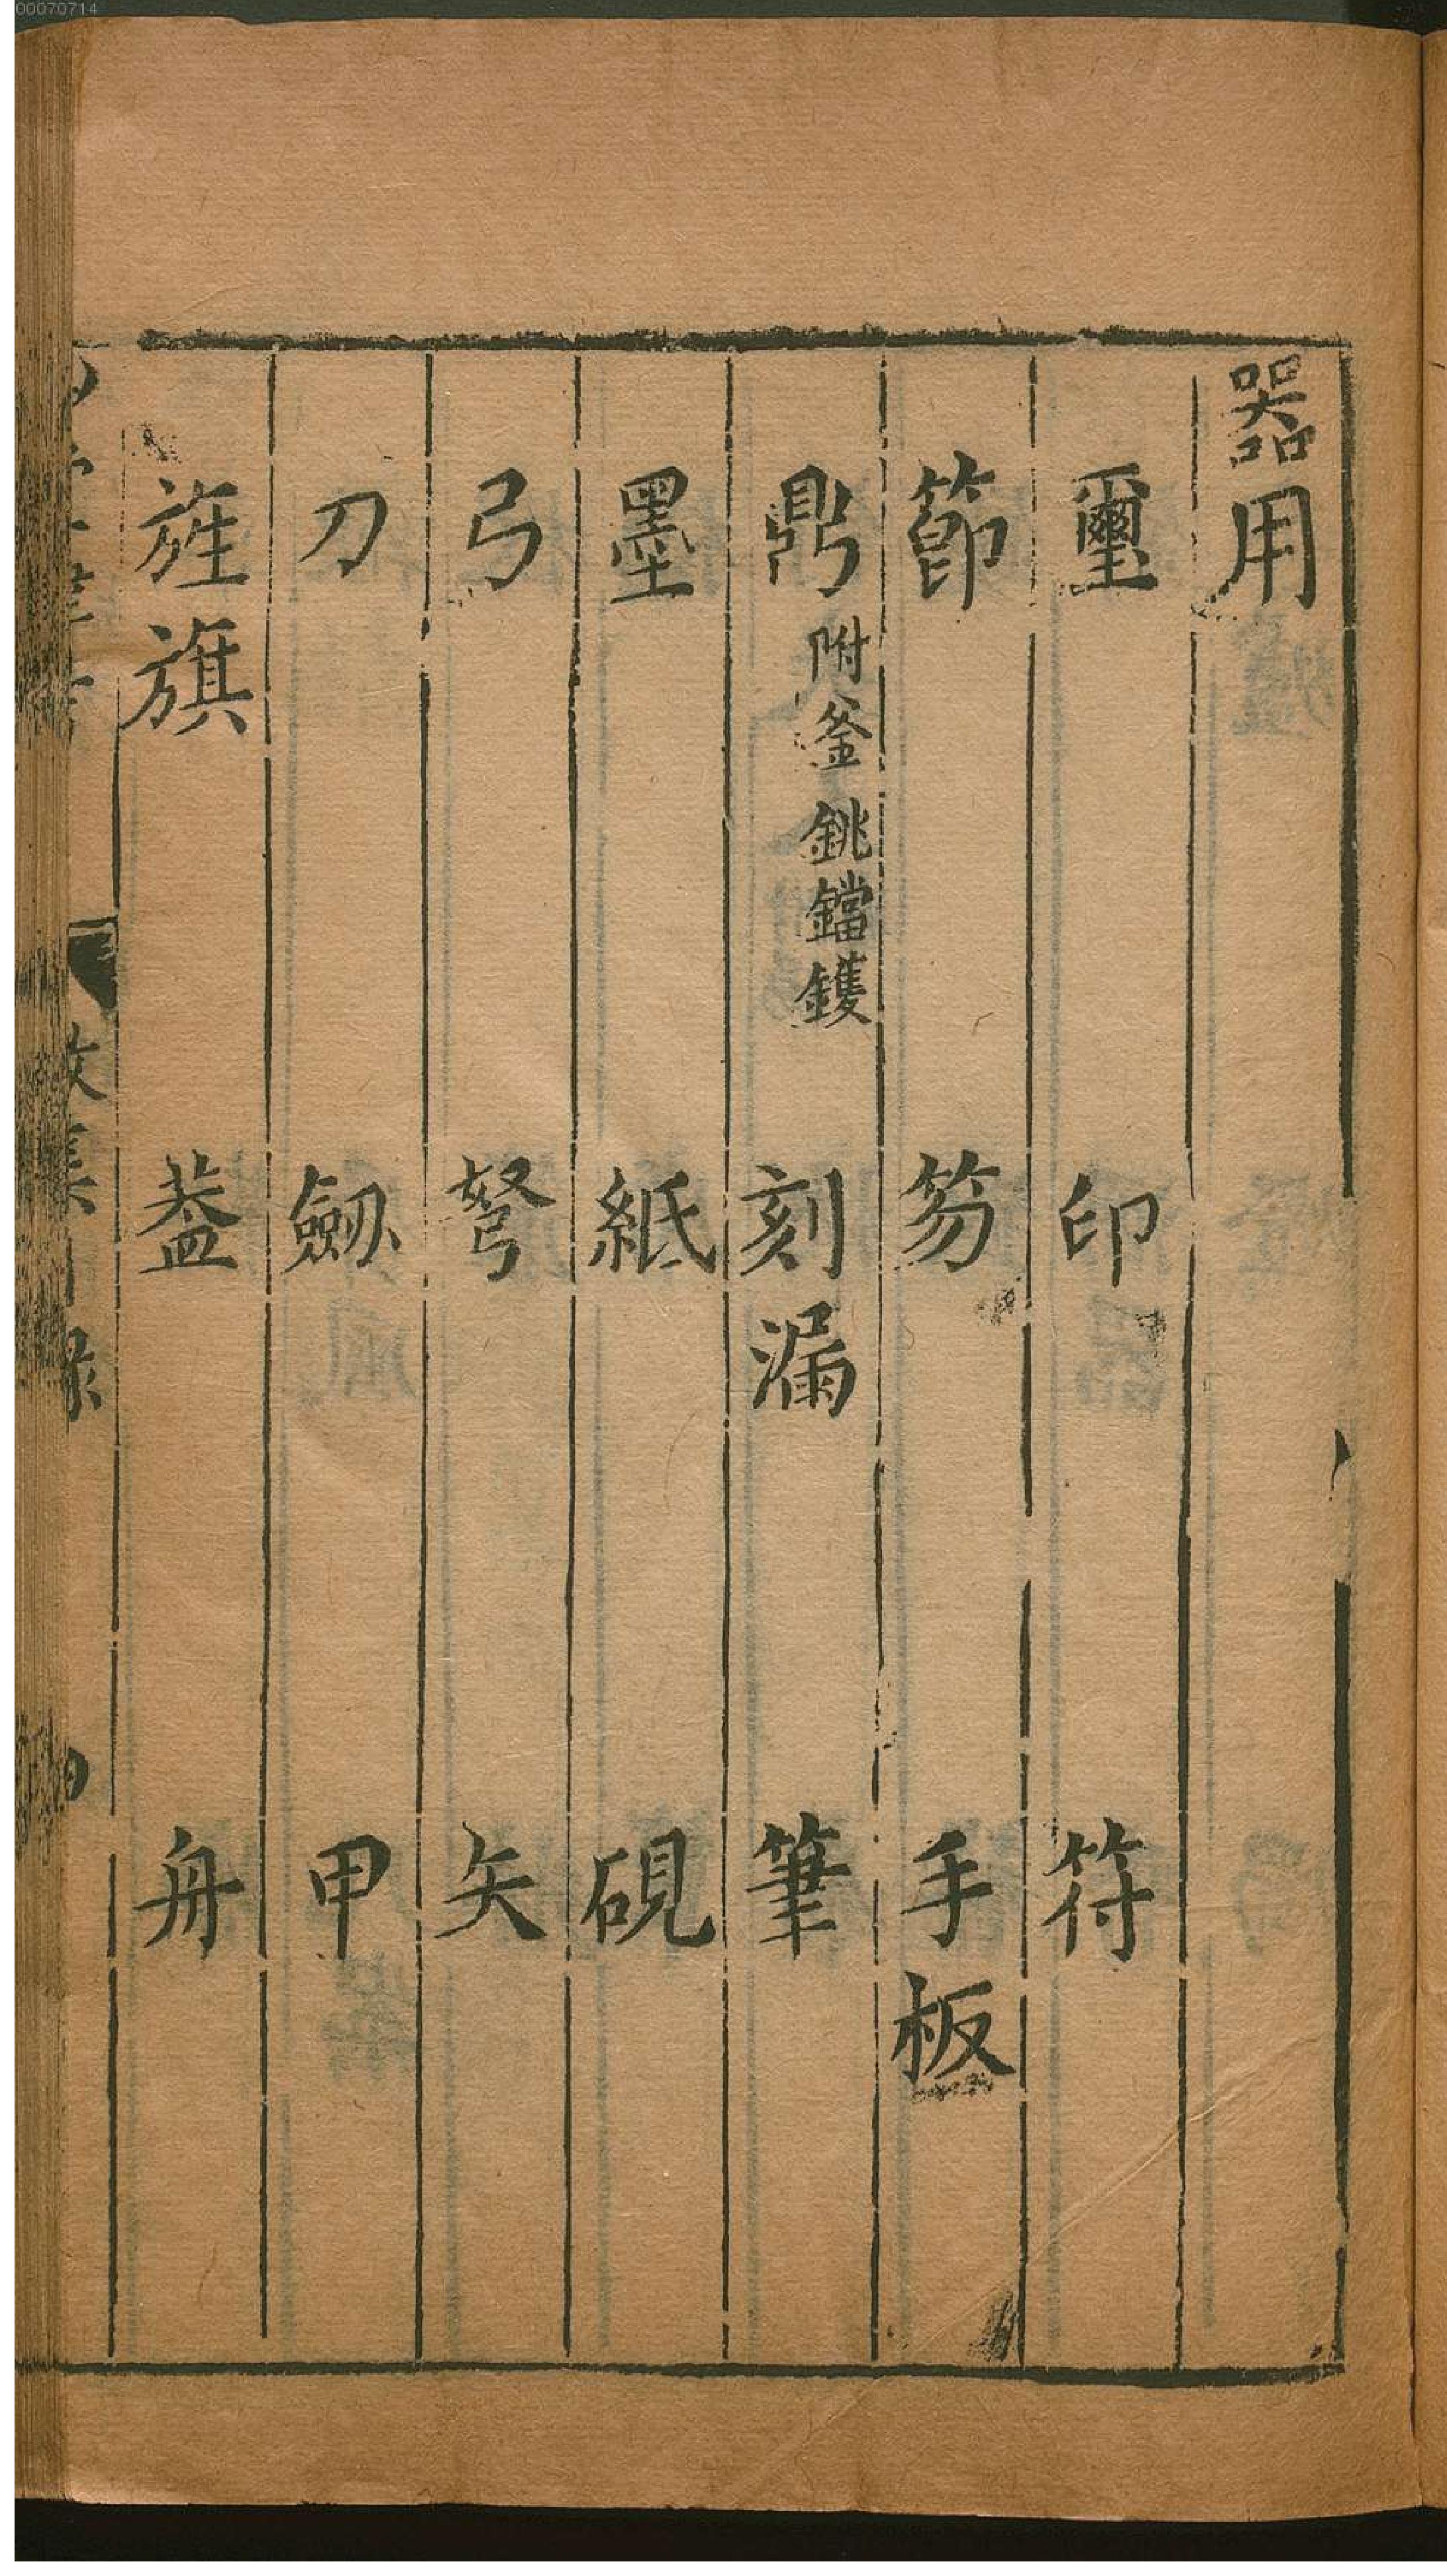 00070714
器用
璽 印 符
節 笏 手板
鼎附釜銚鐺鑊 刻漏 筆
墨 紙 硯
弓 弩 矢
刀 劒 甲
旌旗 葢 舟